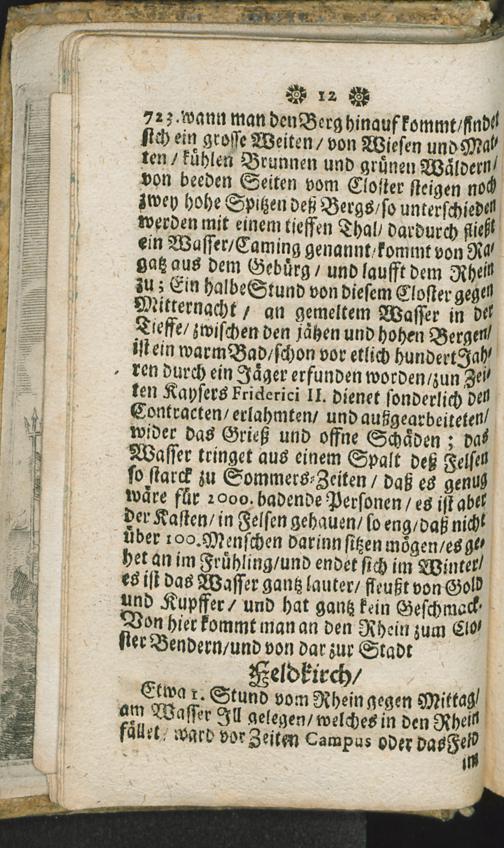 12
723. wann man den Berg hinauf kommt/ findet
sich ein grosse Weiten/ von Wiesen und Mat-
ten/ kühlen Brunnen und grünen Wäldern/
von beeden Seiten vom Closter steigen noch
zwey hohe Spitzen deß Bergs/ so unterschieden
werden mit einem tieffen Thal/ dardurch fließt
ein Wasser/ Caming genannt/ kommt von Ra-
gatz aus dem Gebürg/ und laufft dem Rhein
zu; Ein halbe Stund von diesem Closter gegen
Mitternacht/ an gemeltem Wasser in der
Tieffe/ zwischen den jähen und hohen Bergen/
ist ein warm Bad/ schon vor etlich hundert Jah-
ren durch ein Jäger erfunden worden/ zun Zei-
ten Kaysers Friderici II. dienet sonderlich den
Contracten/ erlahmten/ und außgearbeiteten/
wider das Grieß und offne Schäden; das
Wasser tringet aus einem Spalt deß Felsen
so starck zu Sommers-Zeiten/ daß es genug
wäre für 2000. badende Personen/ es ist aber
der Kasten/ in Felsen gehauen/ so eng/ daß nicht
über 100. Menschen darinn sitzen mögen/ es ge-
het an im Frühling/ und endet sich im Winter/
es ist das Wasser gantz lauter/ fleußt von Gold
und Kupffer/ und hat gantz kein Geschmack.
Von hier kommt man an den Rhein zum Clo-
ster Bendern/ und von dar zur Stadt
Feldkirch/
Etwa 1. Stund vom Rhein gegen Mittag/
am Wasser Ill gelegen/ welches in den Rhein
fället/ ward vor Zeiten Campus oder das Feld
im